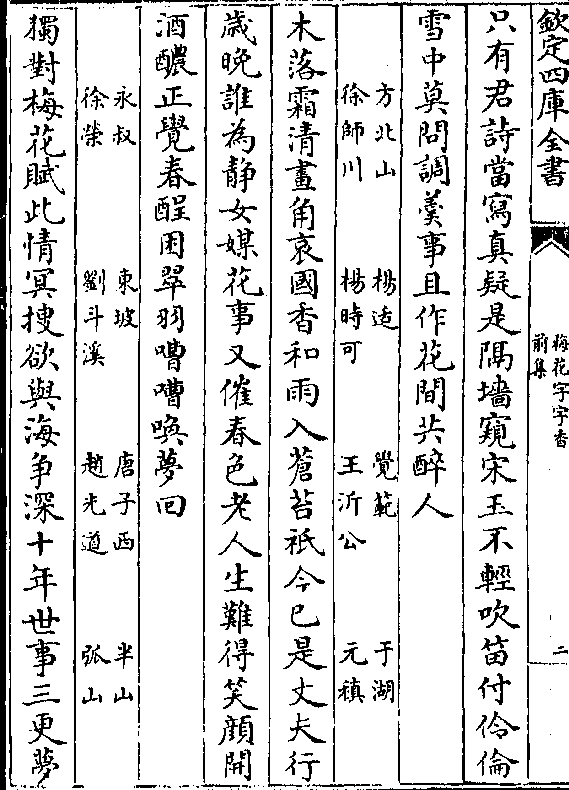 欽定四庫全書
梅花字字香
前集
二
只有君詩當寫真疑是隔墻窺宋玉不輕吹笛付伶倫
雪中莫問調羮事且作花間共醉人
方北山 楊适 覺範 于湖
徐師川 楊時可 王沂公 元稹
木落霜清畫角哀國香和雨入蒼苔祇今已是丈夫行
歲晚誰為静女媒花事又催春色老人生難得笑顔開
酒醲正覺春酲困翠羽嘈嘈喚夢回
永叔 東坡 唐子西 半山
徐榮 劉斗溪 趙光道 孤山
獨對梅花賦此情冥搜欲與海争深十年世事三更夢